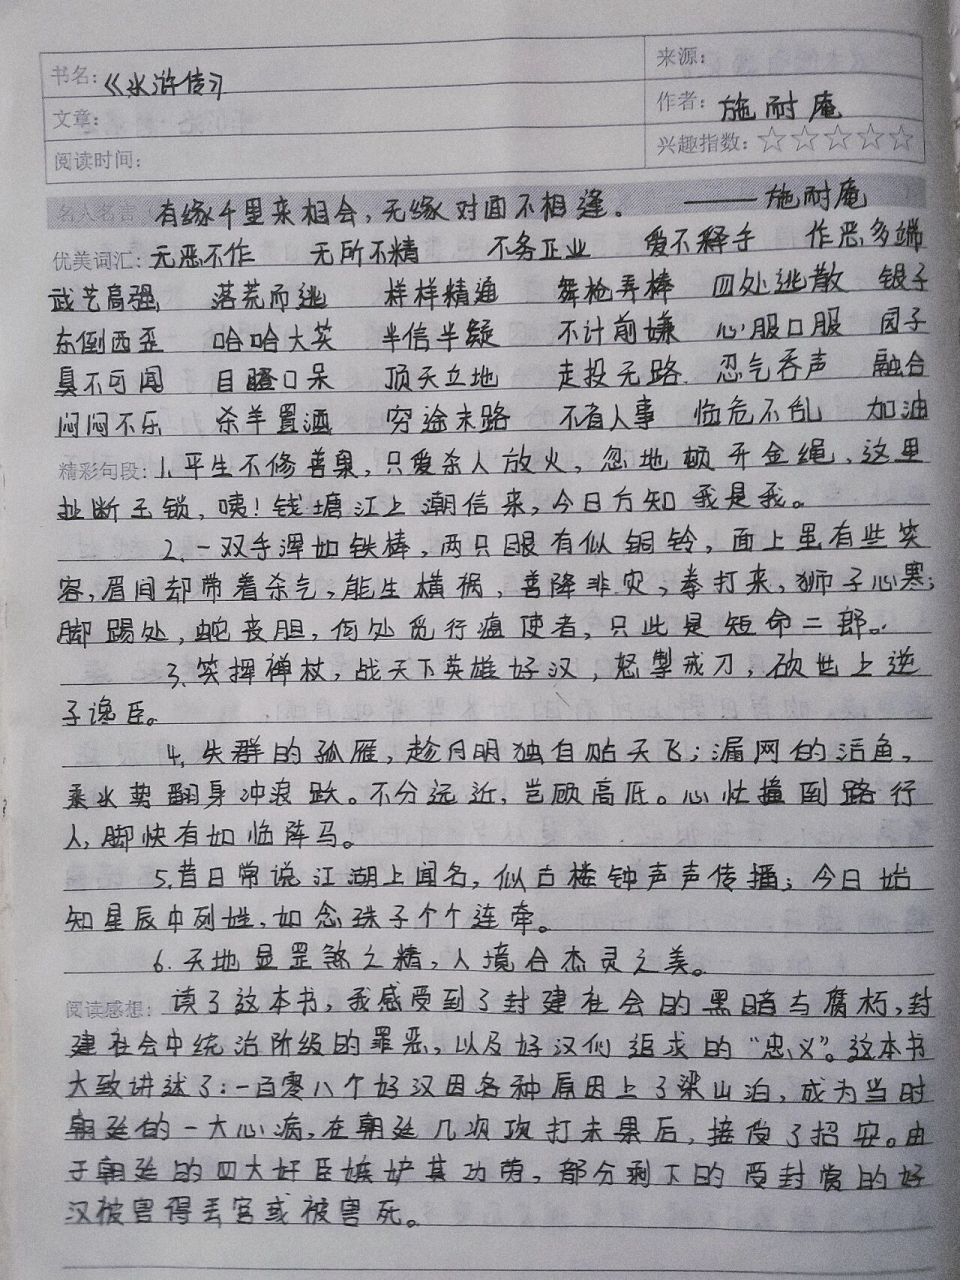 书名:《水浒传》
来源:
文章:
作者: 施耐庵
阅读时间:
兴趣指数:☆☆☆☆☆
名人名言 有缘千里来相会,无缘对面不相逢。 ——施耐庵
优美词汇:无恶不作 无所不精 不务正业 爱不释手 作恶多端
武艺高强 落荒而逃 样样精通 舞枪弄棒 四处逃散 银子
东倒西歪 哈哈大笑 半信半疑 不计前嫌 心服口服 园子
臭不可闻 目瞪口呆 顶天立地 走投无路 忍气吞声 融合
闷闷不乐 杀羊置酒 穷途末路 不省人事 临危不乱 加油
精彩句段:1.平生不修善果,只爱杀人放火,忽地顿开金绳,这里
扯断玉锁,咦!钱塘江上潮信来,今日方知我是我。
2.一双手浑如铁棒,两只眼有似铜铃,面上虽有些笑
容,眉间却带着杀气,能生横祸,善降非灾,拳打来,狮子心寒;
脚踢处,蛇丧胆,何处觅行瘟使者,只此是短命二郎。
3.笑挥禅杖,战天下英雄好汉,怒掣戒刀,砍世上逆
子谗臣。
4.失群的孤雁,趁月明独自贴天飞;漏网的活鱼,
乘水势翻身冲浪跃。不分远近,岂顾高低。心忙撞到路行
人,脚快有如临阵马。
5.昔日常说江湖上闻名,似古楼钟声声传播;今日始
知星辰中列姓,如念珠子个个连牵。
6.天地显罡煞之精,人境合杰灵之美。
阅读感想: 读了这本书,我感受到了封建社会的黑暗与腐朽,封
建社会中统治阶级的罪恶,以及好汉们追求的“忠义”。这本书
大致讲述了:一百零八个好汉因各种原因上了梁山泊,成为当时
朝廷的一大心病,在朝廷几次攻打未果后,接受了招安。由
于朝廷的四大奸臣嫉妒其功劳,部分剩下的受封赏的好
汉被害得丢官或被害死。